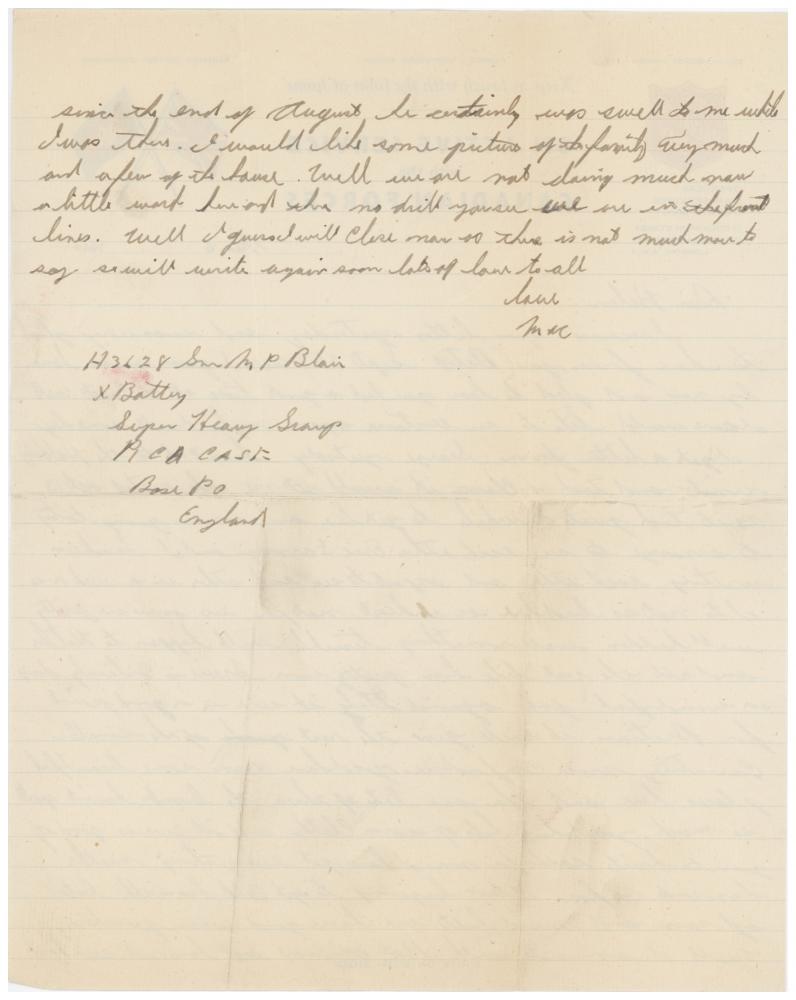 since the end of August, he certainly was swell to me while
I was there. I would like some picture of the family very much
and a few of the house. Well we are not doing much now
a little work here and there no drill you see we are in the front
lines. Well I guess I will close now as there is not much more to
say so will write again soon lots of love to all
love
Mac
H3628 Gnr M P Blair
X Battery
Super Heavy Group
RCA CASF
Base PO
England